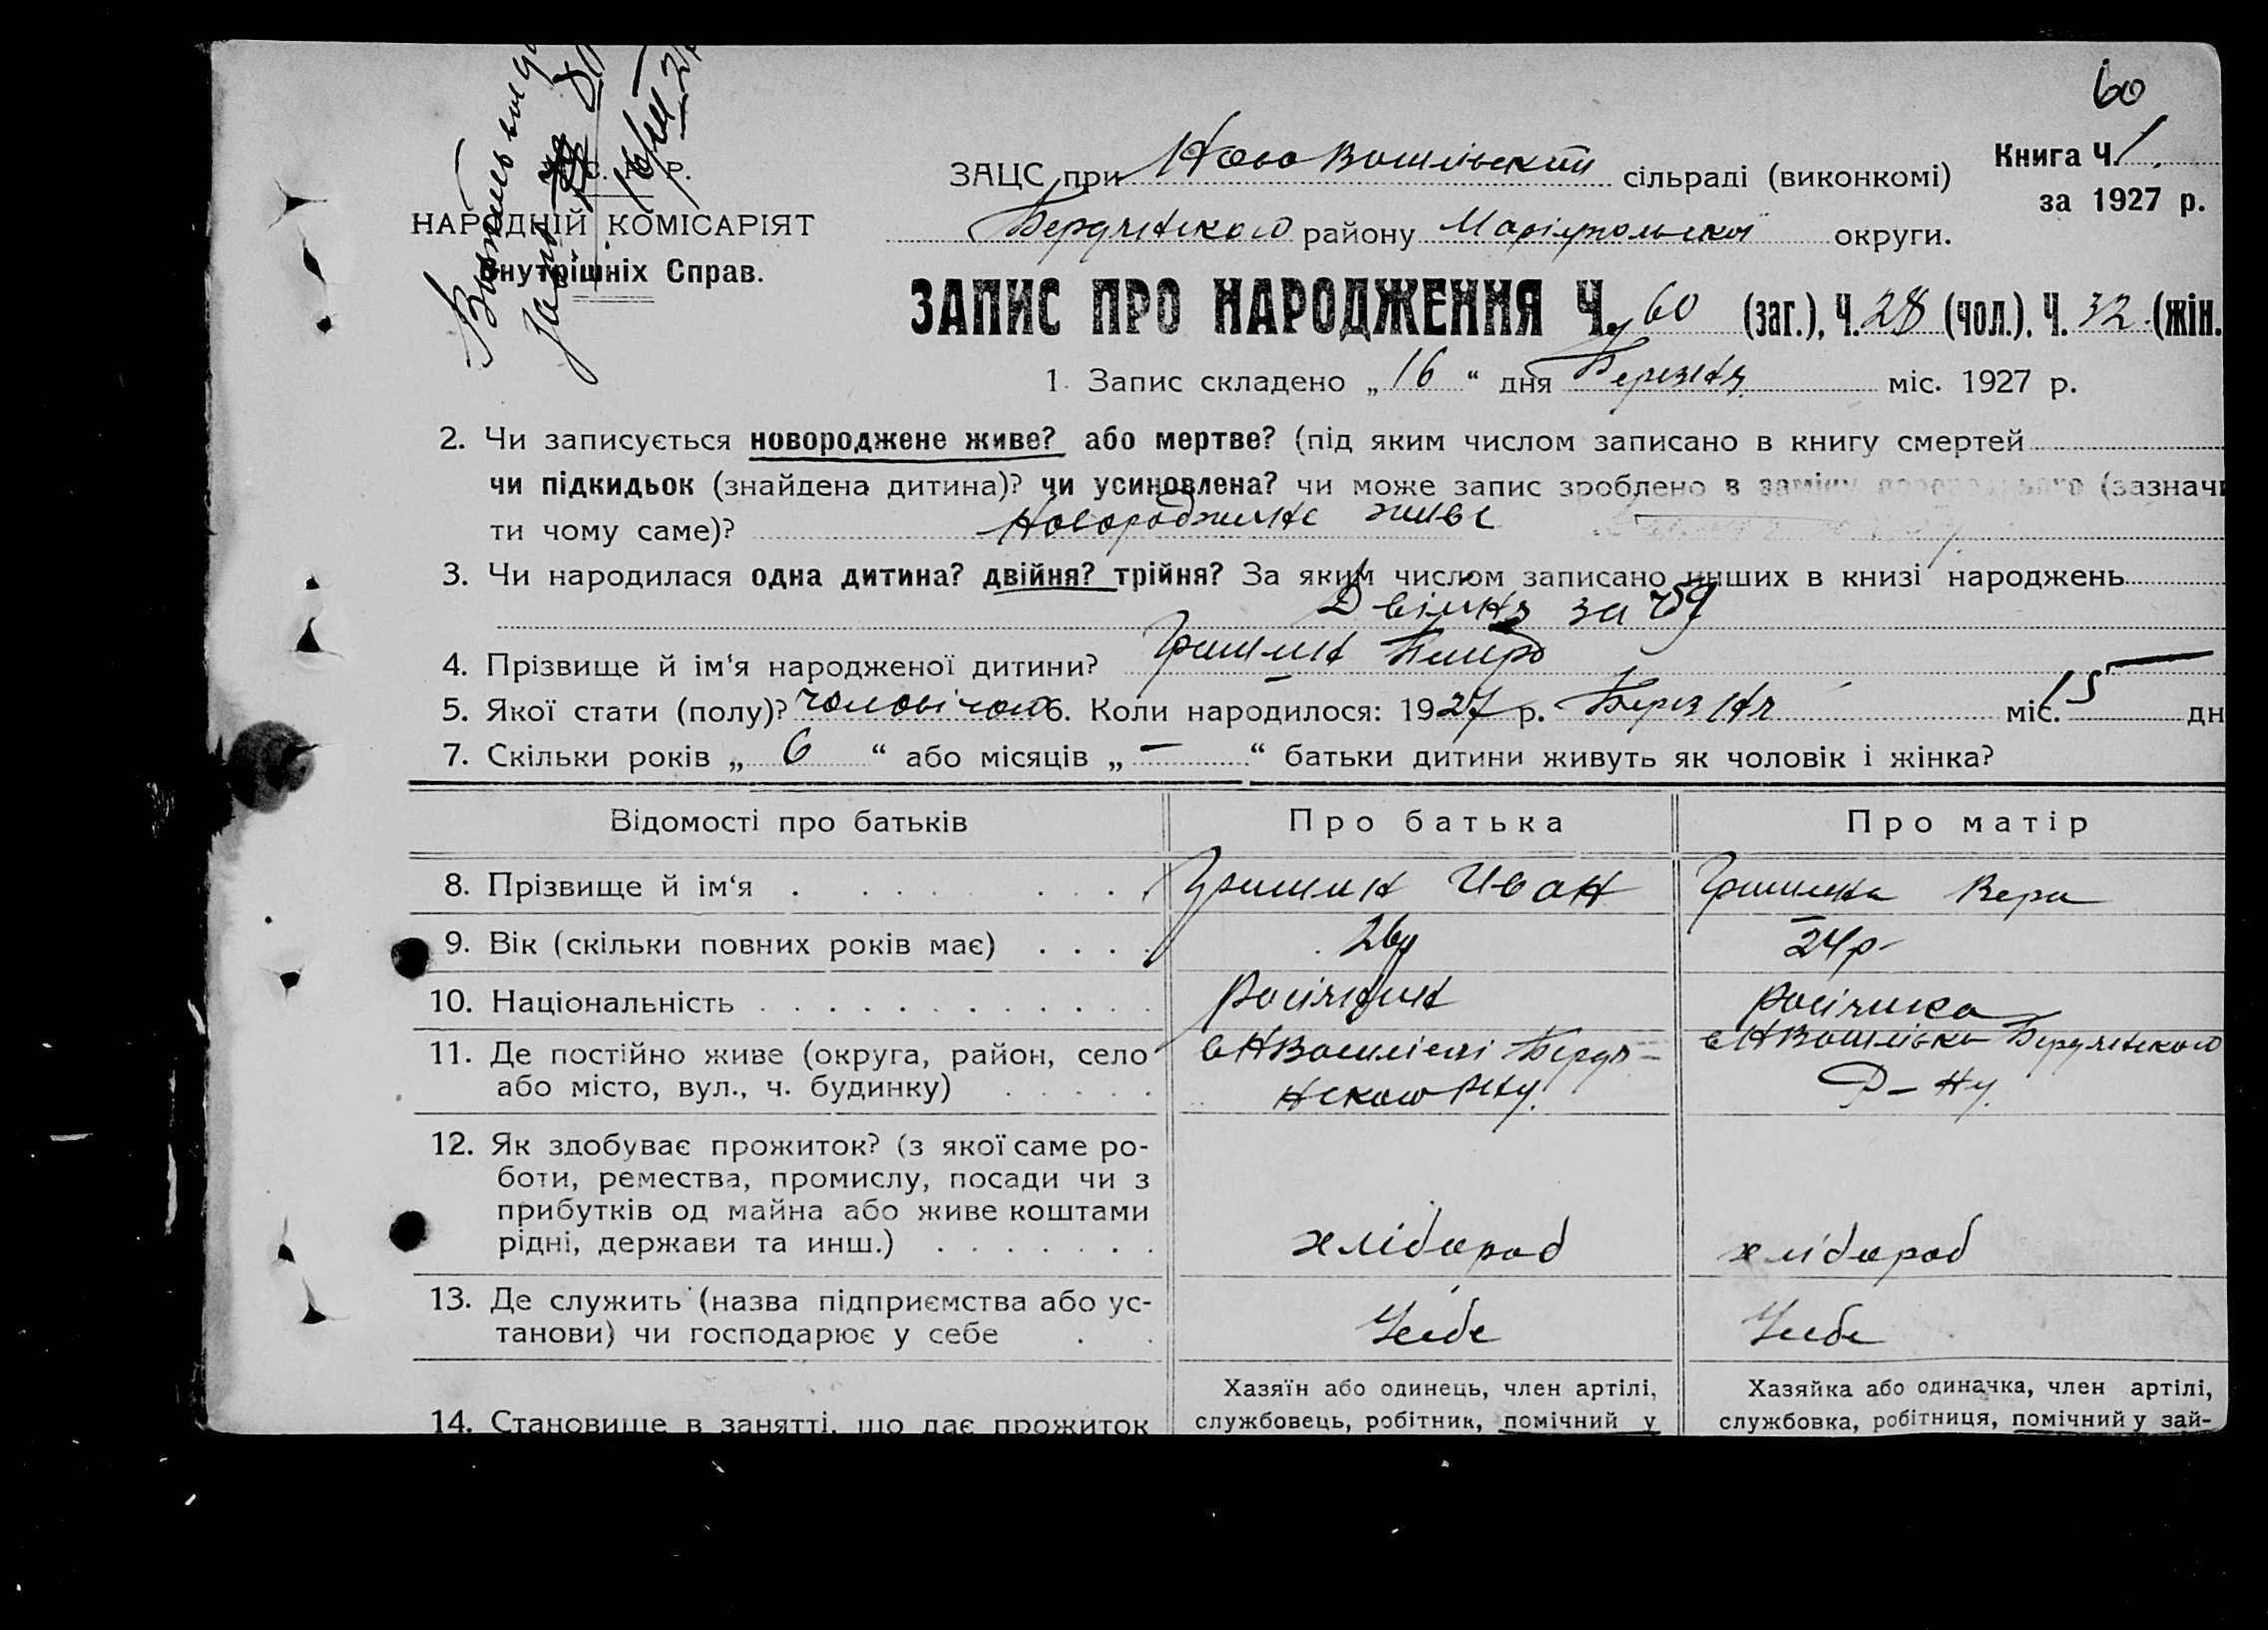 60
Книга Ч. 1.
за 1927 р.
НАРОДНІЙ КОМІСАРІЯТ
Внутрішніх Справ.
ЗАЦС при Ново Васильевській сільраді (виконкомі)
Бердянского району Маріупольської округи.
ЗАПИС ПРО НАРОДЖЕННЯ Ч. 60 (заг.), Ч. 28 (чол.), Ч. 32 (жін.
1. Запис складено „ 16 “ дня Березня міс. 1927 р.
2. Чи записується новороджене живе? або мертве? (під яким числом записано в книгу смертей
чи підкидьок (знайдена дитина)? чи усиновлена? чи може запис зроблено в заміну (зазначи
ти чому саме)? новороджене живе
3. Чи народилася одна дитина? двійня? трійня? За яким числом записано инших в книзі народжень
Двійня за 59
4. Прізвище й ім‘я народженої дитини? Гришин
5. Якої стати (полу)? чоловічого 6. Коли народилося: 1927 р. Березня міс. 15 дн
7. Скільки років „ 6 “ або місяців „ — “ батьки дитини живуть як чоловік і жінка?
Відомості про батьків Про батька Про матір
8. Прізвище й ім‘я Гришин Иван Гришина Вера
9. Вік (скільки повних років має) 26р 24р
10. Національність росіянин росіянка
11. Де постійно живе (округа, район, село в НВасилівці Бердя- в НВасилівка Бердянского
або місто, вул., ч. будинку) нского Рну. Р-Ну.
12. Як здобуває прожиток? (з якої саме ро-
боти, ремества, промислу, посади чи з
прибутків од майна або живе коштами
рідні, держави та инш.) хлібороб хлібороб
13. Де служить (назва підприємства або ус-
танови) чи господарює у себе Усебе Усебе
Хазяїн або одинець, член артілі, Хазяйка або одиначка, член артілі,
14. Становище в занятті, що дає прожиток службовець, робітник, помічний у службовка, робітниця, помічний у зай-